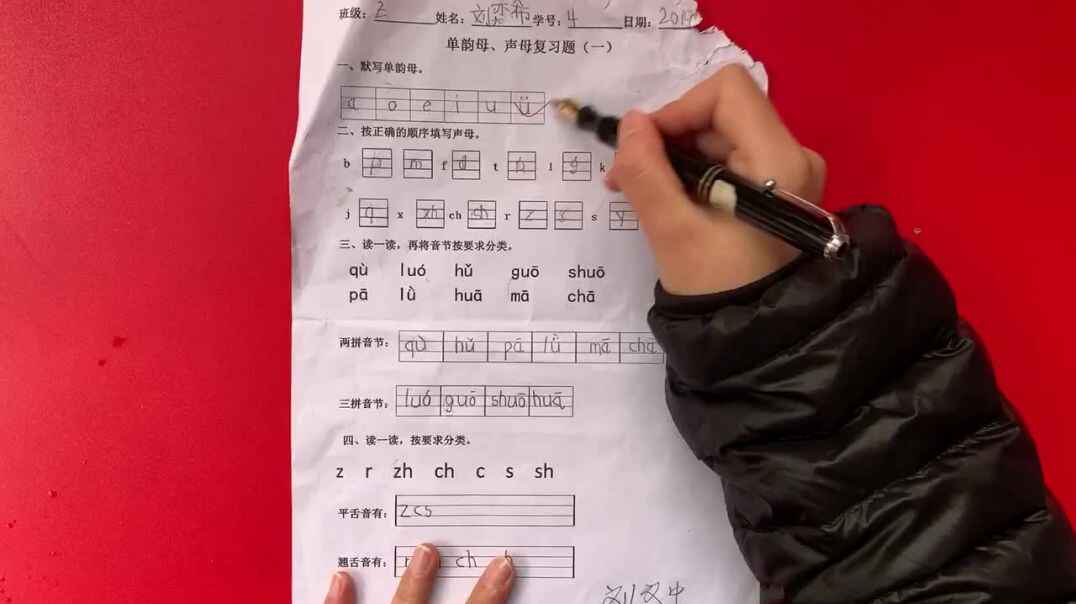 班级: 2 姓名: 刘奕希 学号: 4 日期: 2019
单韵母、声母复习题（一）
一、默写单韵母。
a o e i u ü
二、按正确的顺序填写声母。
b p m f d t n l g k
j q x zh ch sh r z c s y
三、读一读，再将音节按要求分类。
qù luó hǔ guō shuō
pā lǜ huā mā chā
两拼音节: qù hǔ pā lǜ mā chā
三拼音节: luó guō shuō huā
四、读一读，按要求分类。
z r zh ch c s sh
平舌音有: z c s
翘舌音有: r ch h